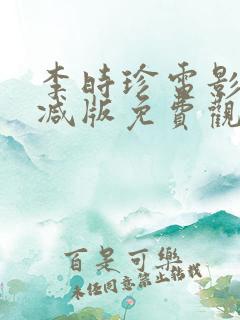 李時珍電影
減版免費觀
百是可樂
未经同意禁止转载